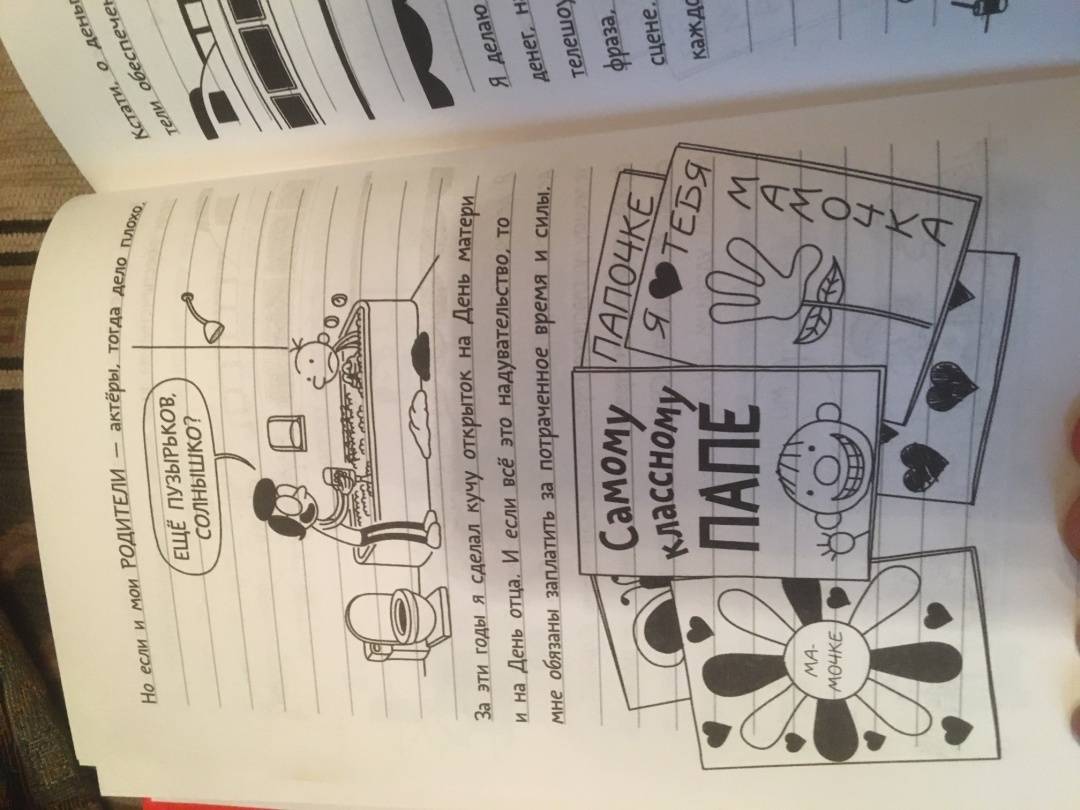 Но если и мои РОДИТЕЛИ — актёры, тогда дело плохо.
ЕЩЁ ПУЗЫРЬКОВ,
СОЛНЫШКО?
За эти годы я сделал кучу открыток на День матери
и на День отца. И если всё это надувательство, то
мне обязаны заплатить за потраченное время и силы.
МА-
МОЧКЕ
Самому
классному
ПАПЕ
ПАПОЧКЕ
Я ♥ ТЕБЯ
МАМОЧКА
Кстати, о деньг
тели обеспечен
Я делаю
денег, н
телешоу
фраза,
сцене.
каждо